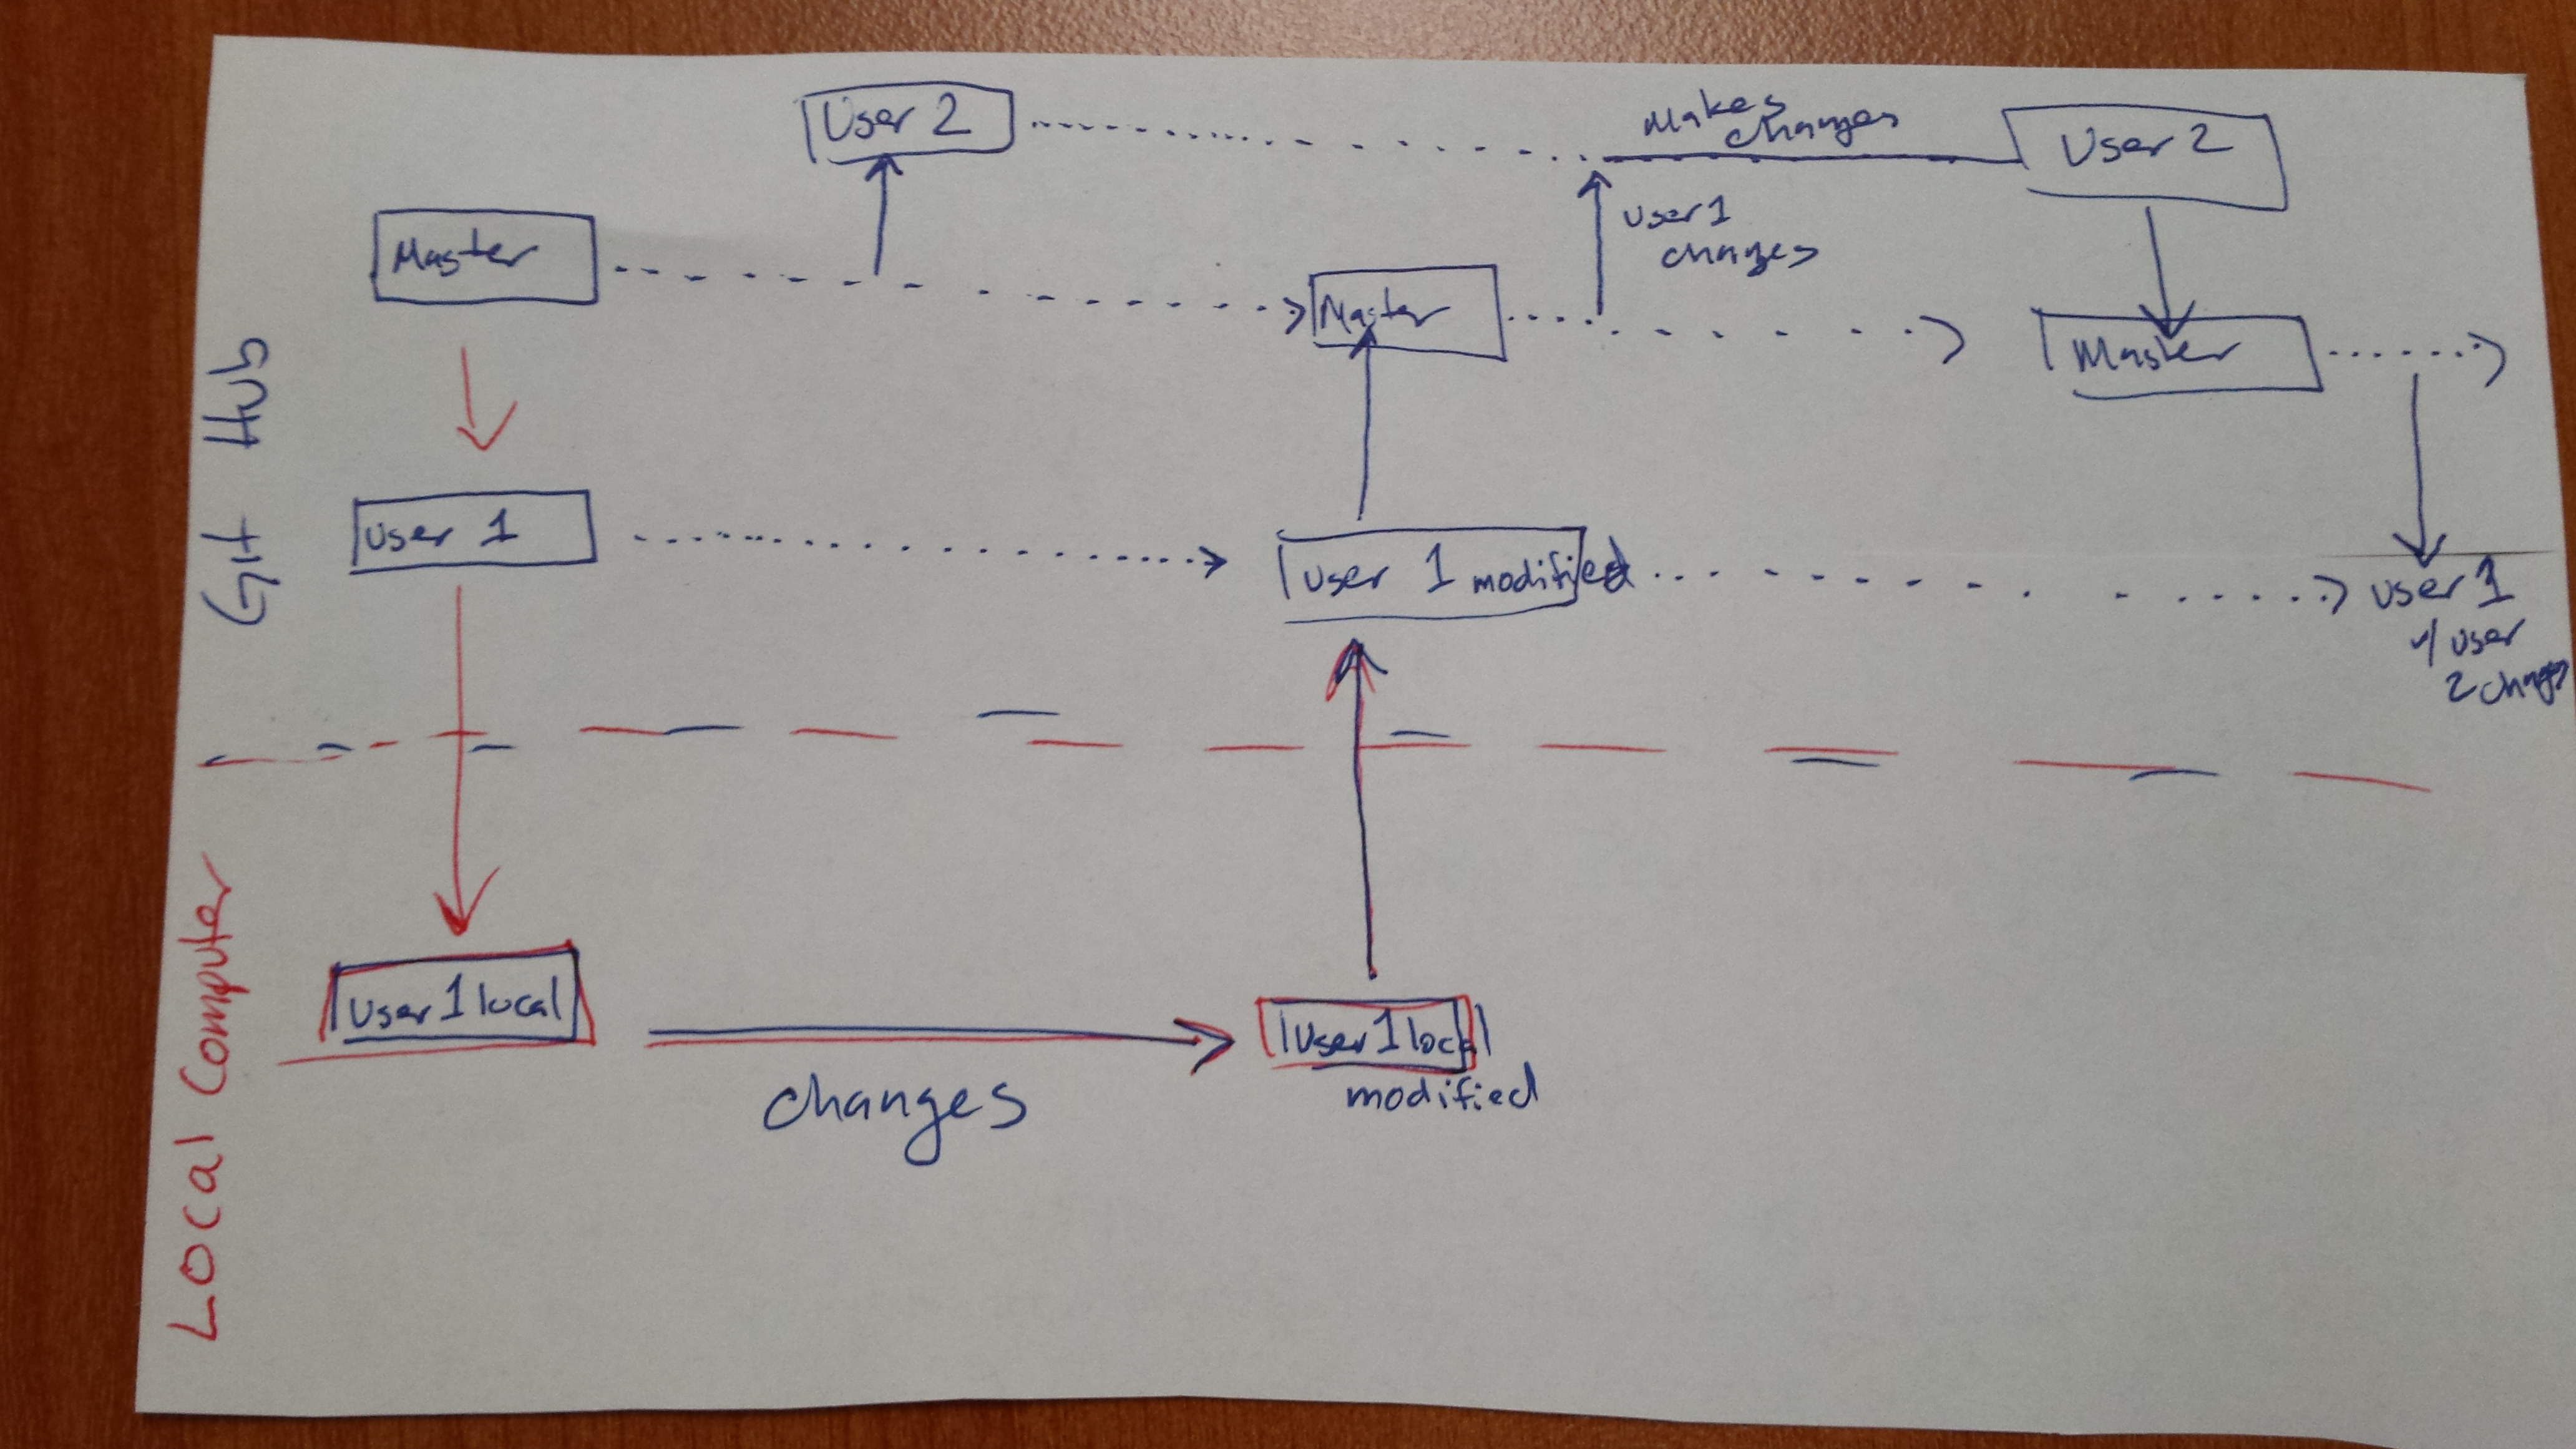 User 2
Makes
changes
User 2
Master
User 1
changes
Master
Master
Git Hub
User 1
User 1 modified
User 1
w/ user
2 changes
Local Computer
User 1 local
changes
User 1 local
modified